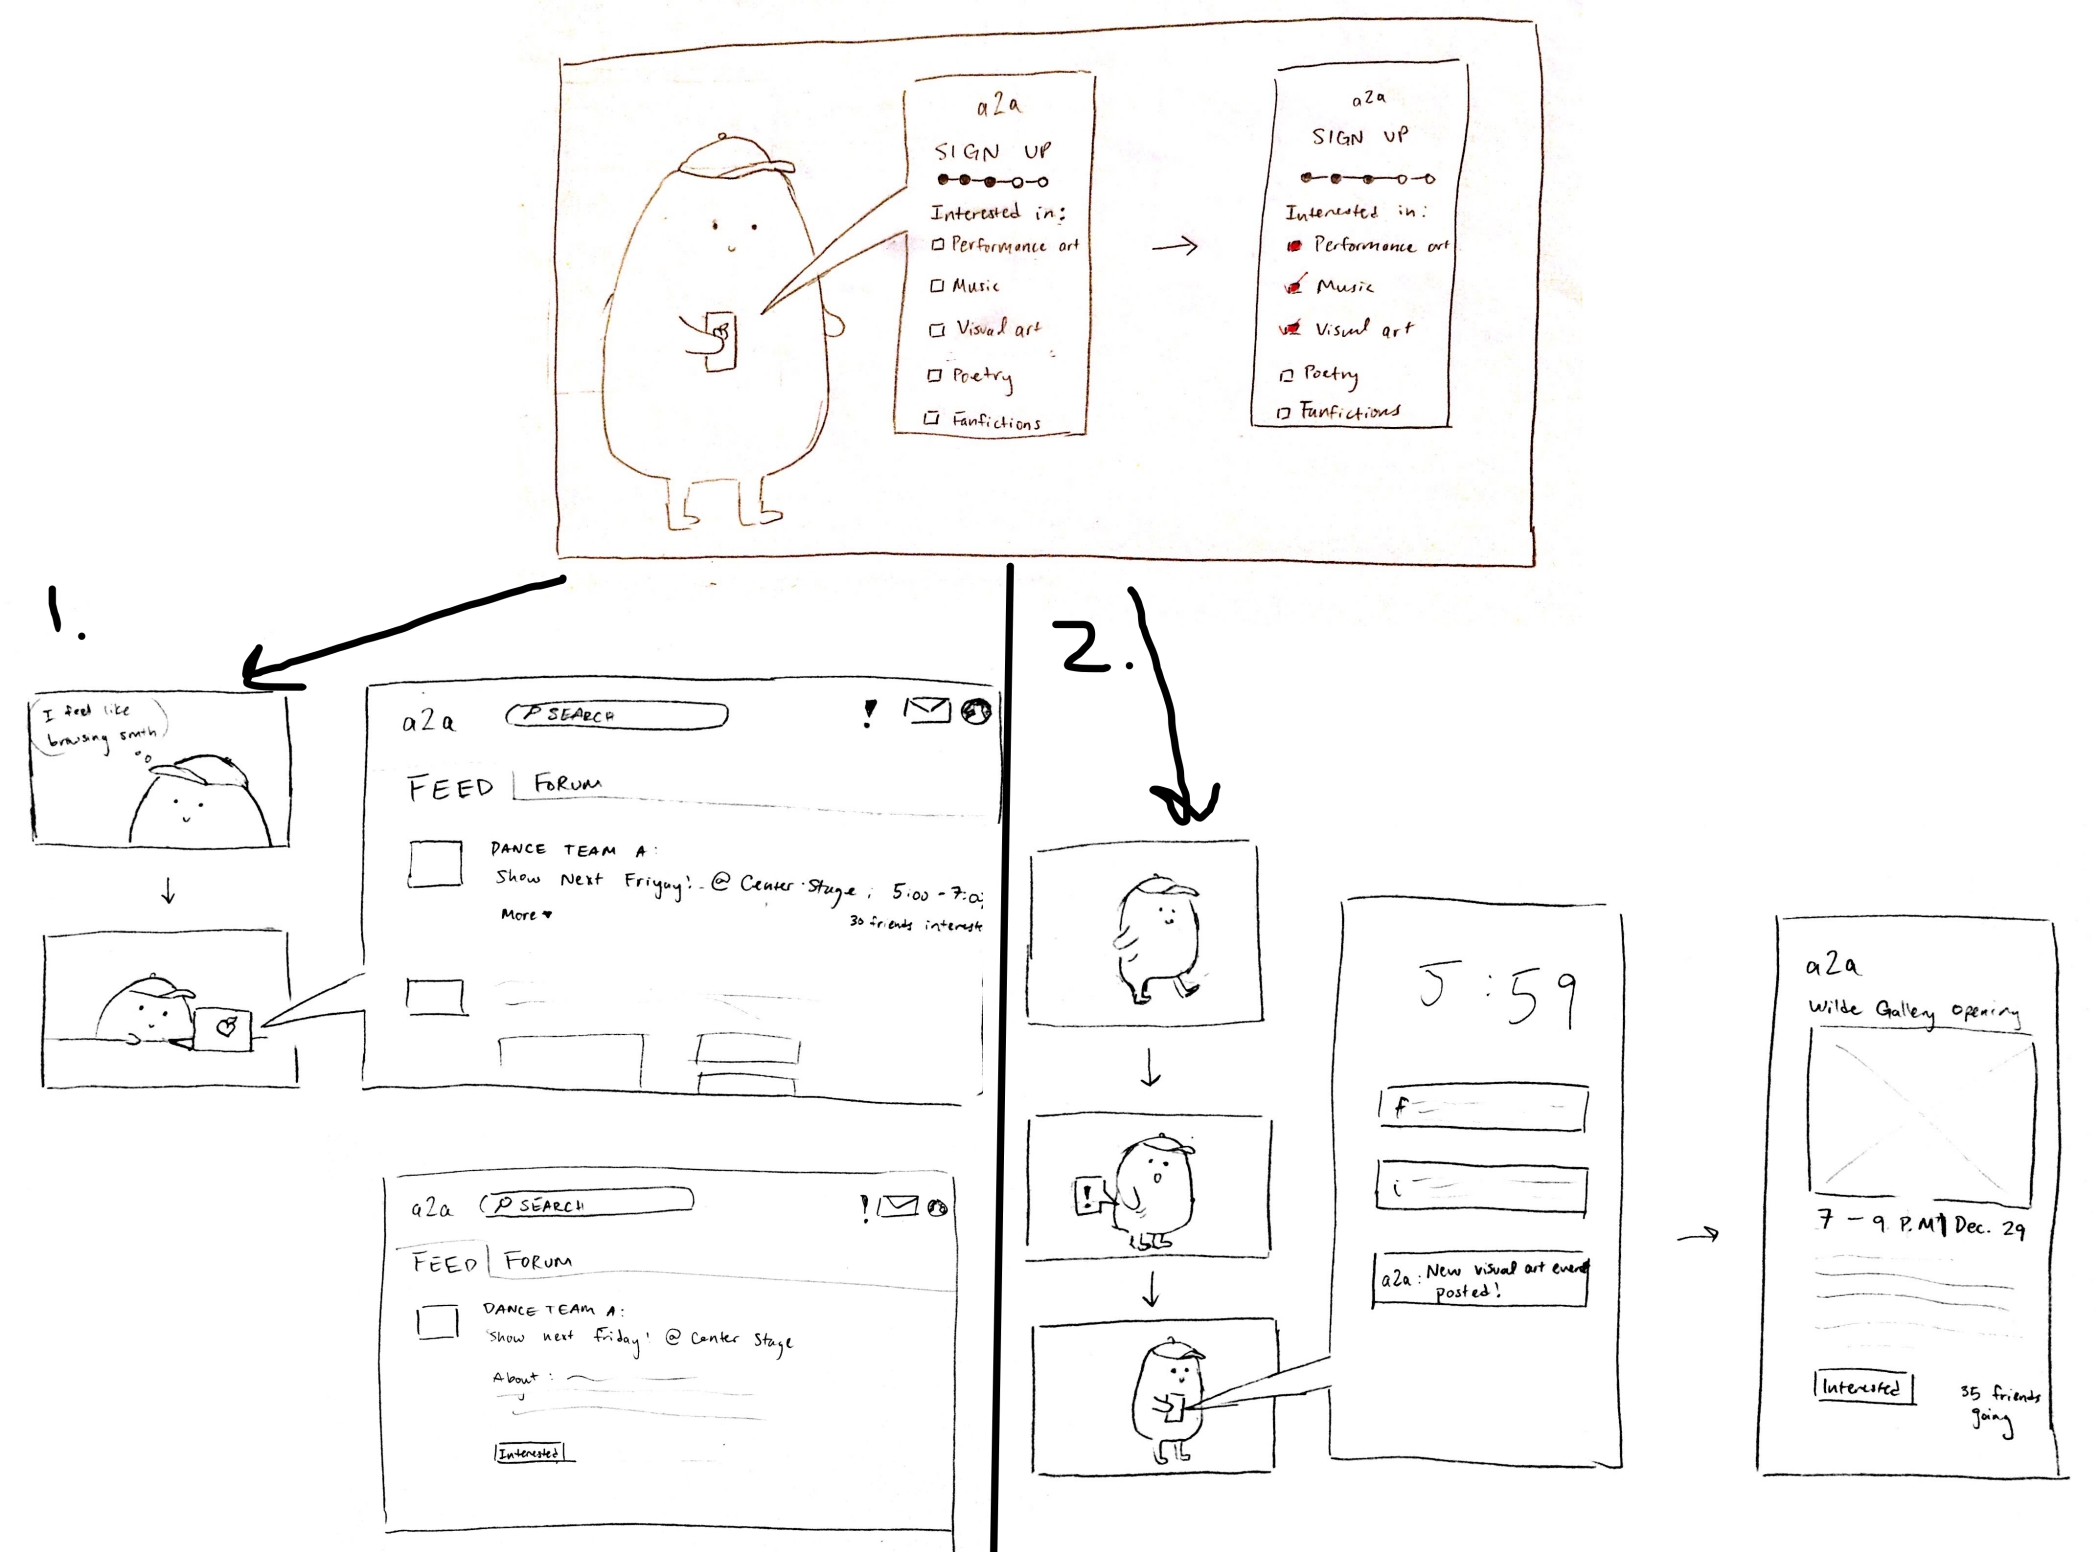 a2a
SIGN UP
Interested in:
Performance art
Music
Visual art
Poetry
Fanfictions
a2a
SIGN UP
Interested in:
Performance art
Music
Visual art
Poetry
Fanfictions
1.
I feel like
browsing smth
a2a
SEARCH
!
FEED
FORUM
DANCE TEAM A:
Show Next Friyay! @ Center Stage, 5:00 - 7:0
More
30 friends intereste
a2a
SEARCH
!
FEED
FORUM
DANCE TEAM A:
Show next friday! @ Center Stage
About:
Interested
2.
!
5:59
f
i
a2a: New visual art event
posted!
a2a
Wilde Gallery Opening
7 - 9 P.M | Dec. 29
Interested
35 friends
going